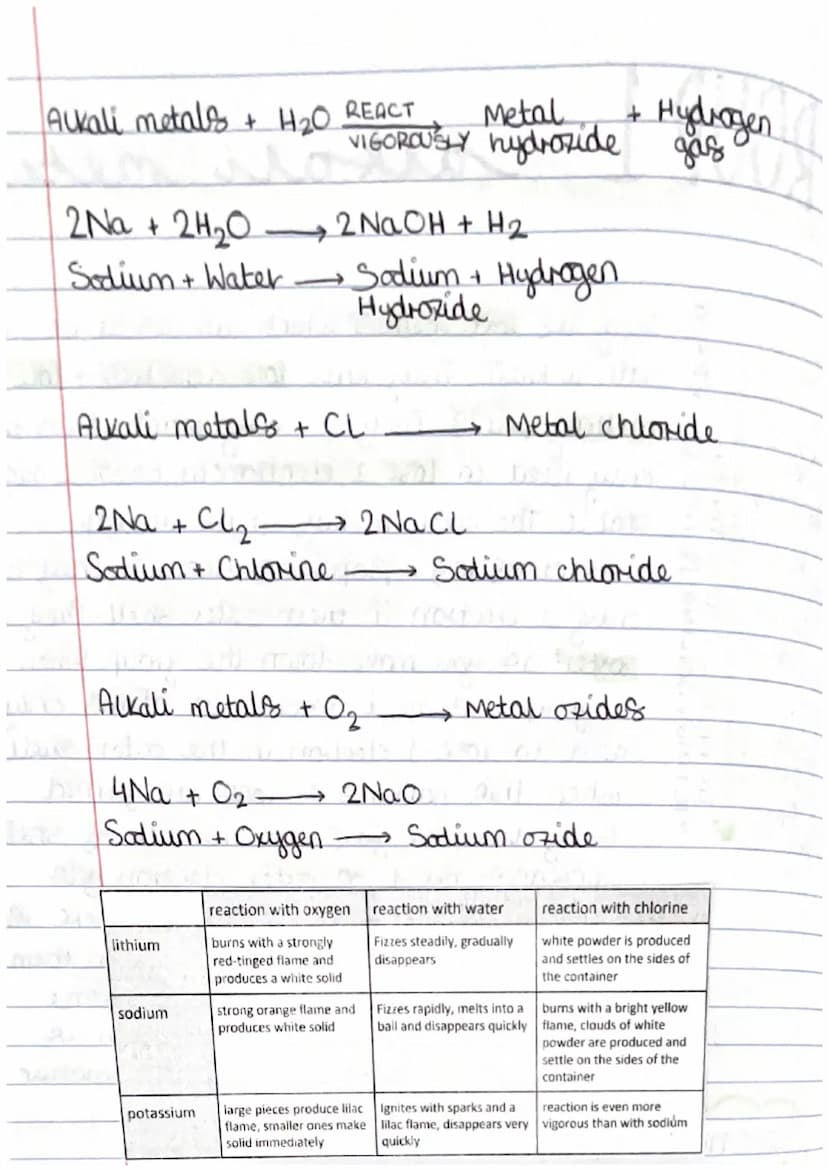 Alkali metals + H2O REACT VIGOROUSLY → Metal hydroxide + Hydrogen gas
2Na + 2H2O → 2NaOH + H2
Sodium + Water → Sodium + Hydrogen
Hydroxide
Alkali metals + Cl → Metal chloride
2Na + Cl2 → 2NaCl
Sodium + Chlorine → Sodium chloride
Alkali metals + O2 → Metal oxides
4Na + O2 → 2NaO
Sodium + Oxygen → Sodium oxide
reaction with oxygen reaction with water reaction with chlorine
lithium burns with a strongly Fizzes steadily, gradually white powder is produced
red-tinged flame and disappears and settles on the sides of
produces a white solid the container
sodium strong orange flame and Fizzes rapidly, melts into a burns with a bright yellow
produces white solid ball and disappears quickly flame, clouds of white
powder are produced and
settle on the sides of the
container
potassium large pieces produce lilac Ignites with sparks and a reaction is even more
flame, smaller ones make lilac flame, disappears very vigorous than with sodium
solid immediately quickly